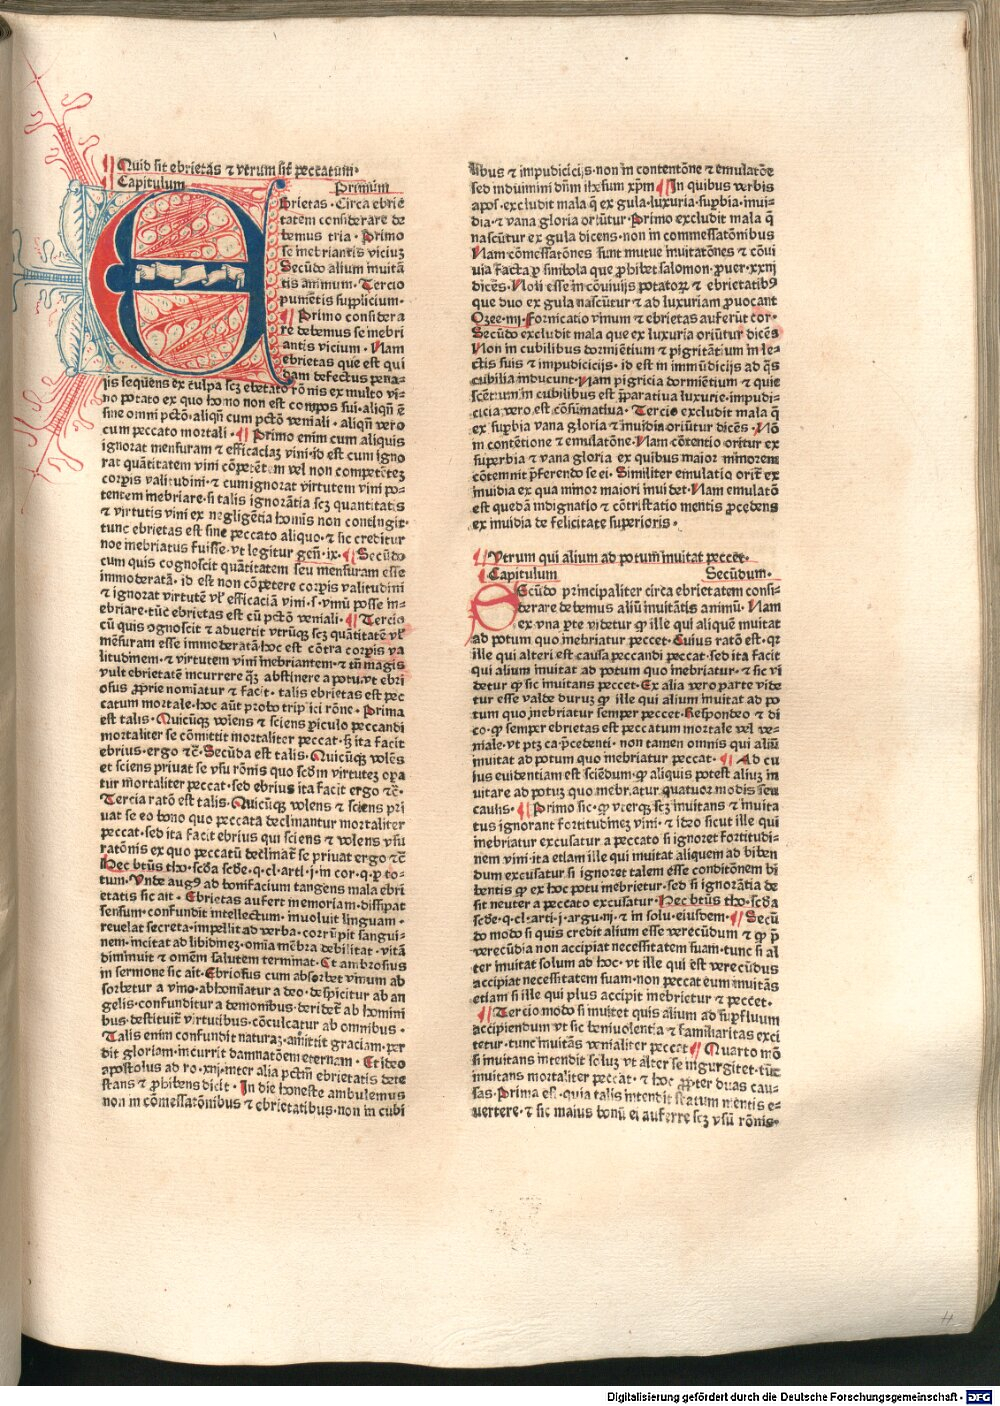 Quid sit ebrietas ⁊ vtrum sit peccatum.
Capitulum Primum
Ebrietas. Circa ebrie
tatem considerare de
bemus tria. Primo
se inebriantis viciuꝫ
Secūdo alium inuitā
tis animum. Tercio
pumētis supplicium.
Primo considera
re debemus se inebri
antis vicium. Nam
ebrietas que est qui
dam defectus pena-
lis sequens ex culpa scꝫ ebetato rōnis ex multo vi-
no potato ex quo homo non est compos sui. aliqñ ē
sine omni pctō. aliqñ cum pctō veniali. aliqñ vero
cum peccato mortali. Primo enim cum aliquis
ignorat mensuram ⁊ efficaciaꝫ vini. id est cum igno
rat quātitatem vini cōpetētem vel non competēteꝫ
corpis valitudini. ⁊ cum ignorat virtutem vini po-
tentem inebriare. si talis ignorātia scꝫ quantitatis
⁊ virtutis vini ex negligētia homis non contingit.
tunc ebrietas est sine peccato aliquo. ⁊ sic creditur
noe inebriatus fuisse. vt legitur geñ. ix. Secūdo
cum quis cognoscit quātitatem seu mensuram esse
immoderatā. id est non cōpetere corpis valitudini
⁊ ignorat virtutē vł efficaciā vini. s. vinū posse in-
ebriare. tūc ebrietas est cū pctō veniali. Tercio
cū quis cognoscit ⁊ aduertit vtrūqꝫ scꝫ quātitatē vł
mēsuram esse immoderatā. hoc est cōtra corpis va
litudinem. ⁊ virtutem vini inebriantem. ⁊ tñ magis
vult ebrietatē incurrere qꝫ abstinere a potu. vt ebri
osus pprie nominatur ⁊ facit. talis ebrietas est pec
catum mortale. hoc aūt probo triplici rōne. Prima
est talis. Quicūqꝫ volens ⁊ sciens piculo peccandi
mortaliter se cōmittit mortaliter peccat. sꝫ ita facit
ebrius. ergo ⁊c̄. Secūda est talis. Quicūqꝫ volēs
et sciens priuat se vsu rōnis quo scdm virtuteꝫ opa
tur mortaliter peccat. sed ebrius ita facit ergo ⁊c̄.
Tercia ratō est talis. Quicūqꝫ volens ⁊ sciens pri
uat se eo bono quo peccata declinantur mortaliter
peccat. sed ita facit ebrius qui sciens ⁊ volens vsu
ratōnis ex quo peccatū declinat se priuat ergo ⁊c̄
Hec btūs tho. scda scde. q. cl. arti. j. in cor. q. p to-
tum. Vnde augꝰ ad bonifacium tangens mala ebri
etatis sic ait. Ebrietas aufert memoriam. dissipat
sensum. confundit intellectum. inuoluit linguam.
reuelat secreta. impellit ad verba. corrūpit sangui-
nem. incitat ad libidineꝫ. omīa mēbra debilitat. vitā
diminuit ⁊ omēm salutem terminat. Et ambrosius
in sermone sic ait. Ebriosus cum absorbet vinum ab
sorbetur a vino. abhominatur a deo. despicitur ab an
gelis. confunditur a demonibus. deridet ab homini
bus. destituit virtutibus. cōculcatur ab omnibus.
Talis enim confundit naturaꝫ. amittit graciam. per
dit gloriam. incurrit damnatōem eternam. Et ideo
apostolus ad ro. xiij. inter alia pctm ebrietatis dete
stans ⁊ phibens dicit. In die honeste ambulemus
non in cōmessatōnibus ⁊ ebrietatibus. non in cubi
libus ⁊ impudicicijs. non in contentōne ⁊ emulatōe
sed induimini dñm ihesum xpm In quibus verbis
apos. excludit mala q̄ ex gula. luxuria. supbia. inui-
dia. ⁊ vana gloria oriūtur. Primo excludit mala q̄
nascūtur ex gula dicens. non in commessatōnibus
Nam cōmessatōnes sunt mutue inuitatōnes ⁊ cōui
uia facta p simbola que phibet salomon. puer. xxiij
dicēs. Noli esse in cōuiuijs potatoꝝ ⁊ ebrietatibꝰ
que duo ex gula nascūtur ⁊ ad luxuriam puocant
Ozee. iiij. Fornicatio vinum ⁊ ebrietas auferūt cor.
Secūdo excludit mala que ex luxuria oriūtur dicēs
Non in cubilibus dormiētium ⁊ pigritātium in le-
ctis suis ⁊ impudicicijs. id est in immūdicijs ad q̄s
cubilia inducunt. Nam pigricia dormiētium ⁊ quie
scētium in cubilibus est pparatiua luxurie. impudi-
cicia vero est cōsumatiua. Tercio excludit mala q̄
ex supbia vana gloria ⁊ inuidia oriūtur dicēs. Nō
in contētione ⁊ emulatōne. Nam cōtentio oritur ex
superbia ⁊ vana gloria ex quibus maior minorem
cōtemnit pferendo se ei. Similiter emulatio orit ex
inuidia ex qua minor maiori inuidet. Nam emulatō
est quedā indignatio ⁊ cōtristatio mentis pcedens
ex inuidia de felicitate superioris.
Vtrum qui alium ad potum inuitat peccet.
Capitulum Secūdum.
Secūdo principaliter circa ebrietatem consi-
derare debemus aliū inuitātis animū. Nam
ex vna pte videtur ꝙ ille qui aliquē inuitat
ad potum quo inebriatur peccet. Cuius ratō est. qꝛ
ille qui alteri est causa peccandi peccat. sed ita facit
qui alium inuitat ad potum quo inebriatur. ⁊ sic vi
detur ꝙ sic inuitans peccet. Ex alia vero parte vide
tur esse valde duruꝫ ꝙ ille qui alium inuitat ad po
tum quo inebriatur semper peccet. Respondeo ⁊ di
co. ꝙ semper ebrietas est peccatum mortale vel ve-
niale. vt ptꝫ ca. pcedenti. non tamen omnis qui aliū
inuitat ad potum quo inebriatur peccat. Ad cu
ius euidentiam est sciēdum. ꝙ aliquis potest aliuꝫ in
uitare ad potuꝫ quo inebriatur quatuor modis seu
causis. Primo sic. ꝙ vterqꝫ scꝫ inuitans ⁊ inuita
tus ignorant fortitudineꝫ vini. ⁊ ideo sicut ille qui
inebriatur excusatur a peccato si ignoret fortitudi-
nem vini. ita etiam ille qui inuitat aliquem ad biben
dum excusatur si ignoret talem esse conditōnem bi
bentis ꝙ ex hoc potu inebrietur. sed si ignorātia de
sit neuter a peccato excusatur. Hec btūs tho. scda
scde. q. cl. arti. j. argu. iij. ⁊ in solu. eiusdem. Secū
do modo si quis credit alium esse verecūdum ⁊ ꝙ p
verecūdia non accipiat necessitatem suam. tunc si al
ter inuitat solum ad hoc. vt ille qui est verecūdus
accipiat necessitatem suam. non peccat eum inuitās
etiam si ille qui plus accipit inebrietur ⁊ peccet.
Tercio modo si inuitet quis alium ad supfluum
accipiendum vt sic beniuolentia ⁊ familiaritas exci
tetur. tunc inuitās venialiter peccet Quarto mō
si inuitans intendit soluꝫ vt alter se ingurgitet. tūc
inuitans mortaliter peccat. ⁊ hoc ppter duas cau-
sas. Prima est. quia talis intendit statum mentis e-
uertere. ⁊ sic maius bonū ei auferre scꝫ vsū rōnis.
Digitalisierung gefördert durch die Deutsche Forschungsgemeinschaft - DFG